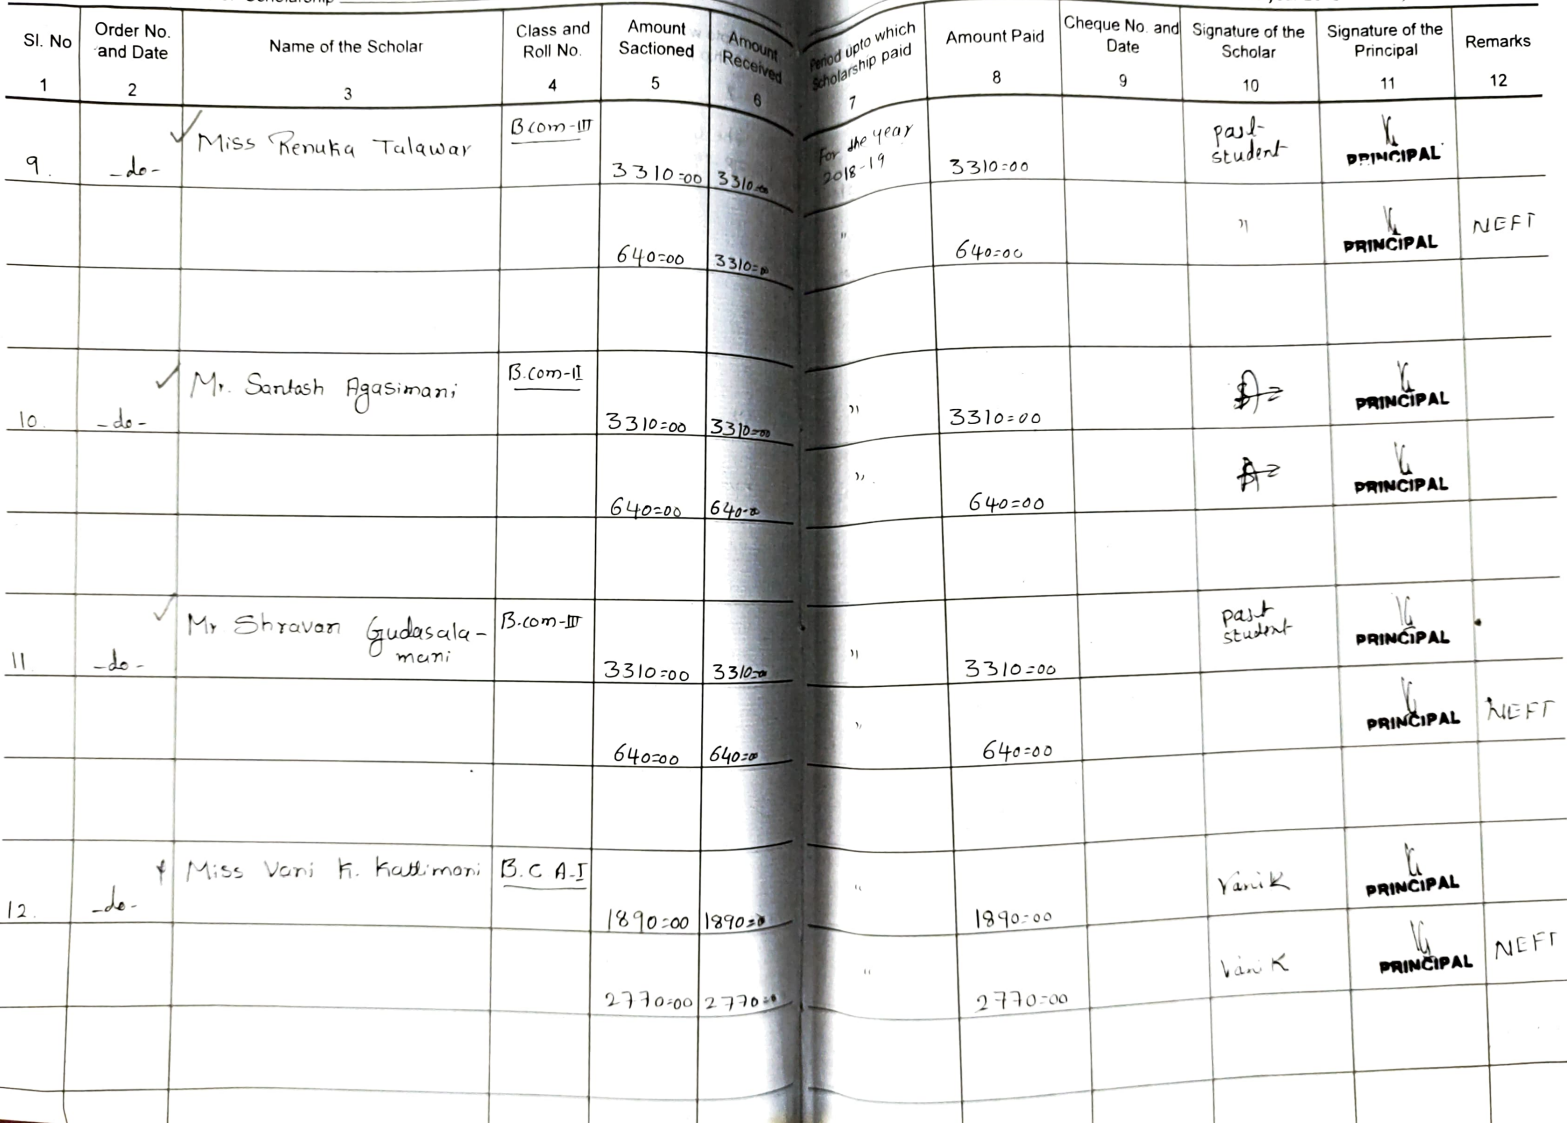 Sl. No Order No. and Date Name of the Scholar Class and Roll No. Amount Sactioned Amount Received Period upto which Scholarship paid Amount Paid Cheque No. and Date Signature of the Scholar Signature of the Principal Remarks
1 2 3 4 5 6 7 8 9 10 11 12
9. -do- Miss Renuka Talawar B com-III 3310=00 3310=00 For the year 2018-19 3310=00 past student PRINCIPAL
640=00 3310=00 " 640=00 " PRINCIPAL NEFT
10. -do- Mr. Santosh Agasimani B.com-II 3310=00 3310=00 " 3310=00 PRINCIPAL
640=00 640=00 " 640=00 PRINCIPAL
11 -do- Mr Shravan Gudasala-mani B.com-III 3310=00 3310=00 " 3310=00 past student PRINCIPAL
640=00 640=00 " 640=00 PRINCIPAL NEFT
12. -do- Miss Vani K. Kattimani B.C A-I 1890=00 1890=00 " 1890=00 Vani K PRINCIPAL
2770=00 2770=00 " 2770=00 Vani K PRINCIPAL NEFT